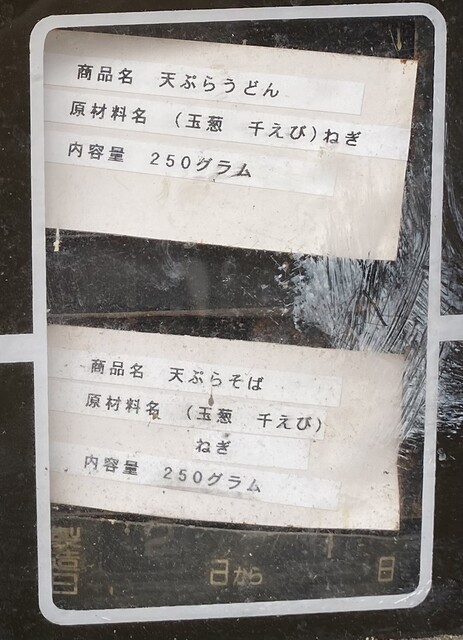 商品名 天ぷらうどん
原材料名 (玉葱 千えび)ねぎ
内容量 250グラム
商品名 天ぷらそば
原材料名 (玉葱 千えび)
ねぎ
内容量 250グラム
日から 日